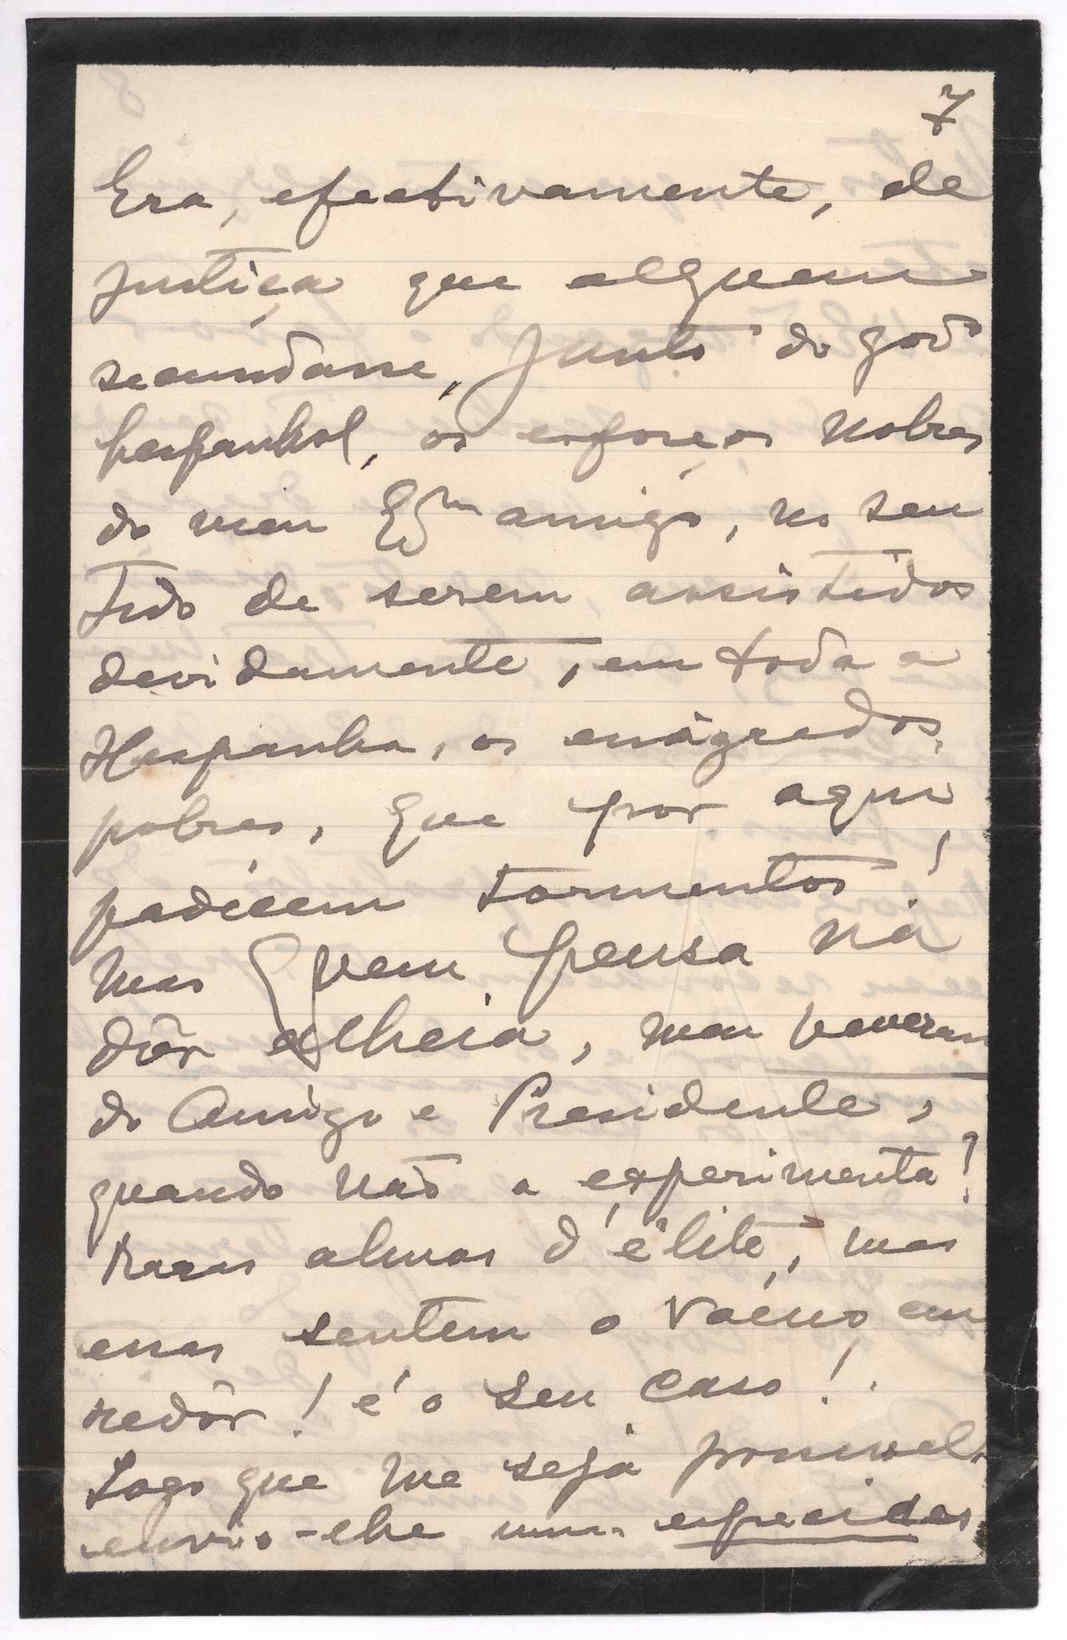 7
Era, efectivamente, de
justiça que alguem
secundasse, junto do govº
hespanhol, os esforços nobres
do meu Exm amigo, no sen
tido de serem assistidos
devidamente, em toda a
Hespanha, os emigrados,
pobres, que por aqui
padecem tormentos!
Mas quem pensa na
dôr alheia, meu veneran
do Amigo e Presidente,
quando não a experimenta?
Raras almas d'élite, mas
essas sentem o vácuo em
redôr! é o seu caso!
Logo que me seja possivel,
envio-lhe uma